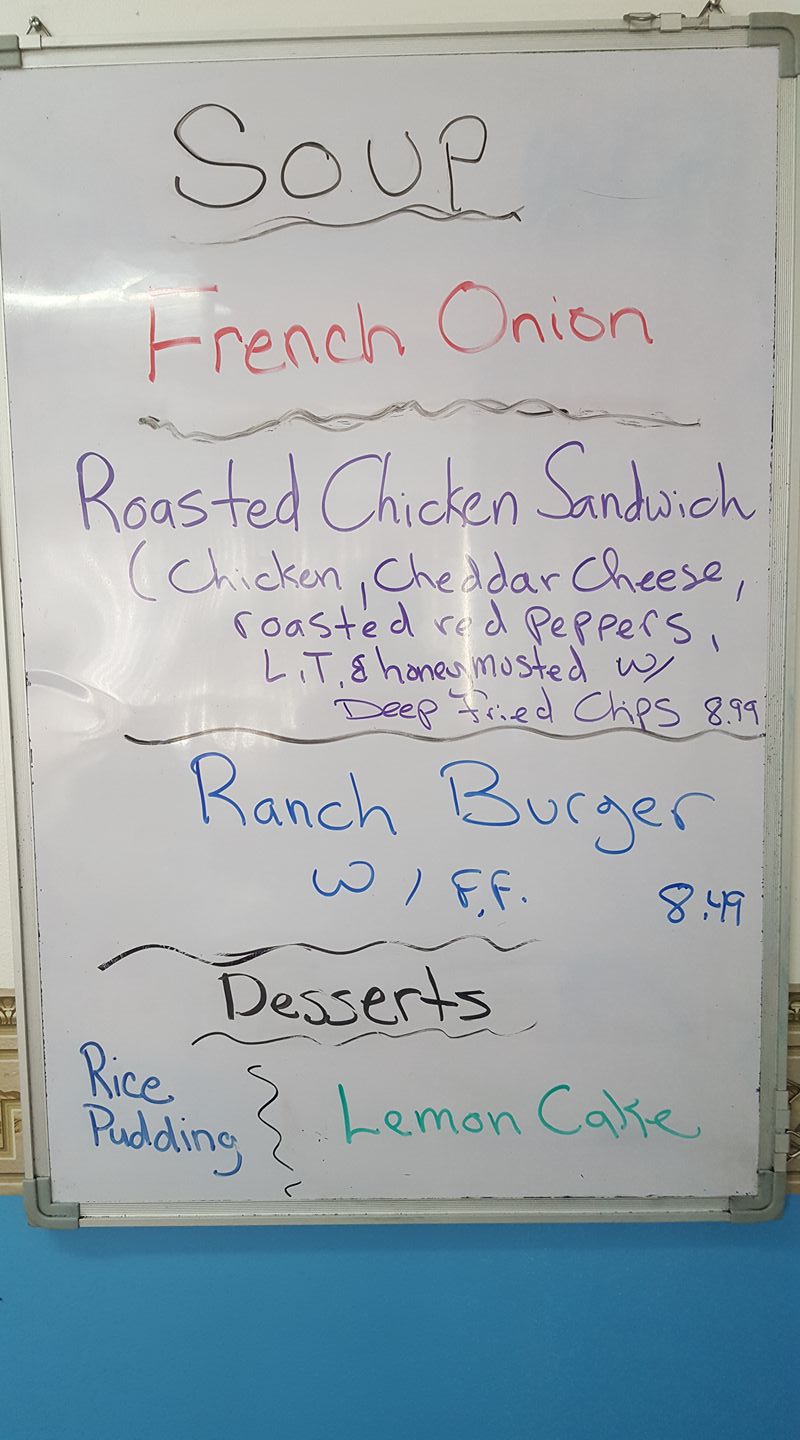 Soup
French Onion
Roasted Chicken Sandwich
(Chicken, Cheddar Cheese,
roasted red peppers,
L.T. & honey musted w/
Deep Fried Chips 8.99
Ranch Burger
w/ F.F. 8.49
Desserts
Rice
Pudding
Lemon Cake